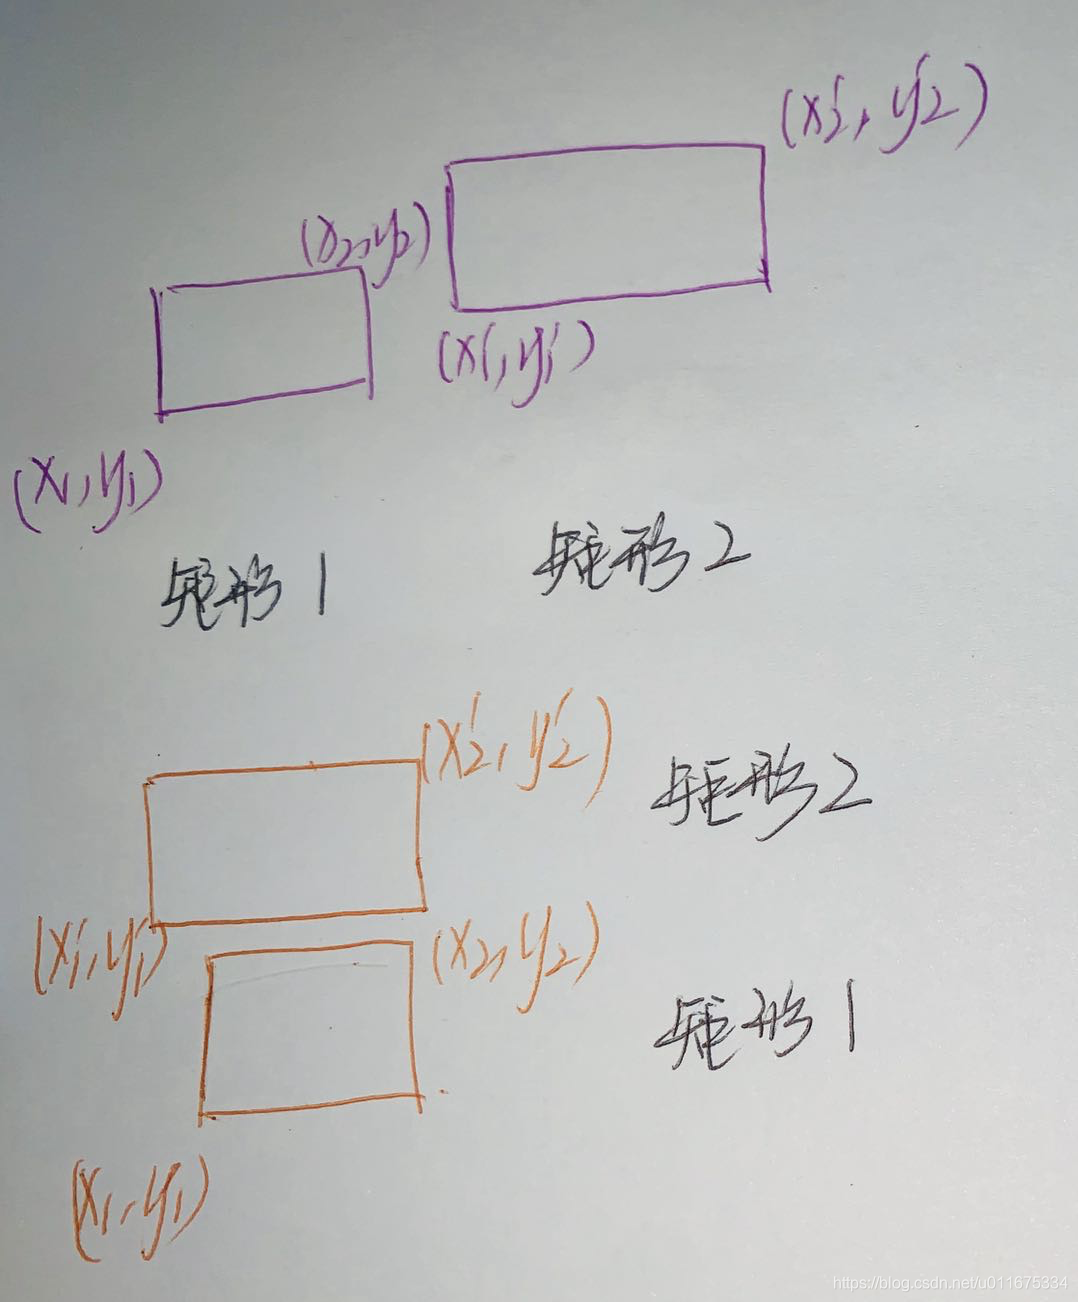 (x₂′, y₂′)
(x₂, y₂)
(x₁′, y₁′)
(x₁, y₁)
矩形1
矩形2
(x₂′, y₂′)
矩形2
(x₁′, y₁′)
(x₂, y₂)
矩形1
(x₁, y₁)
https://blog.csdn.net/u011675334